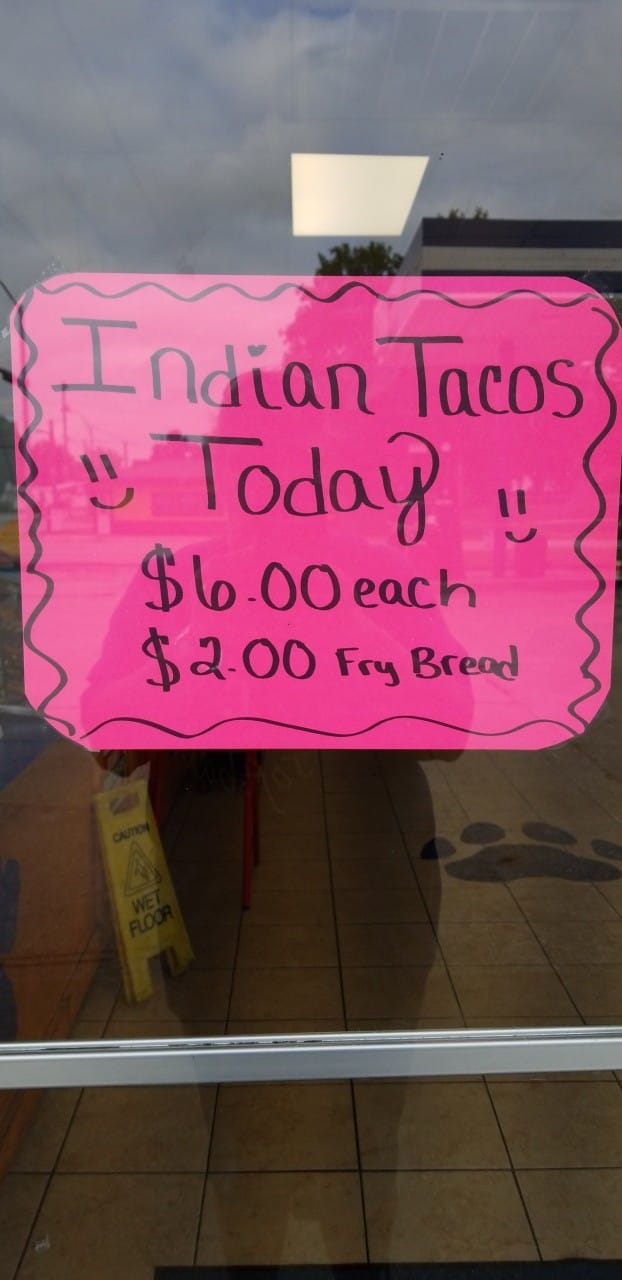 Indian Tacos
Today
$6.00 each
$2.00 Fry Bread
CAUTION
WET
FLOOR